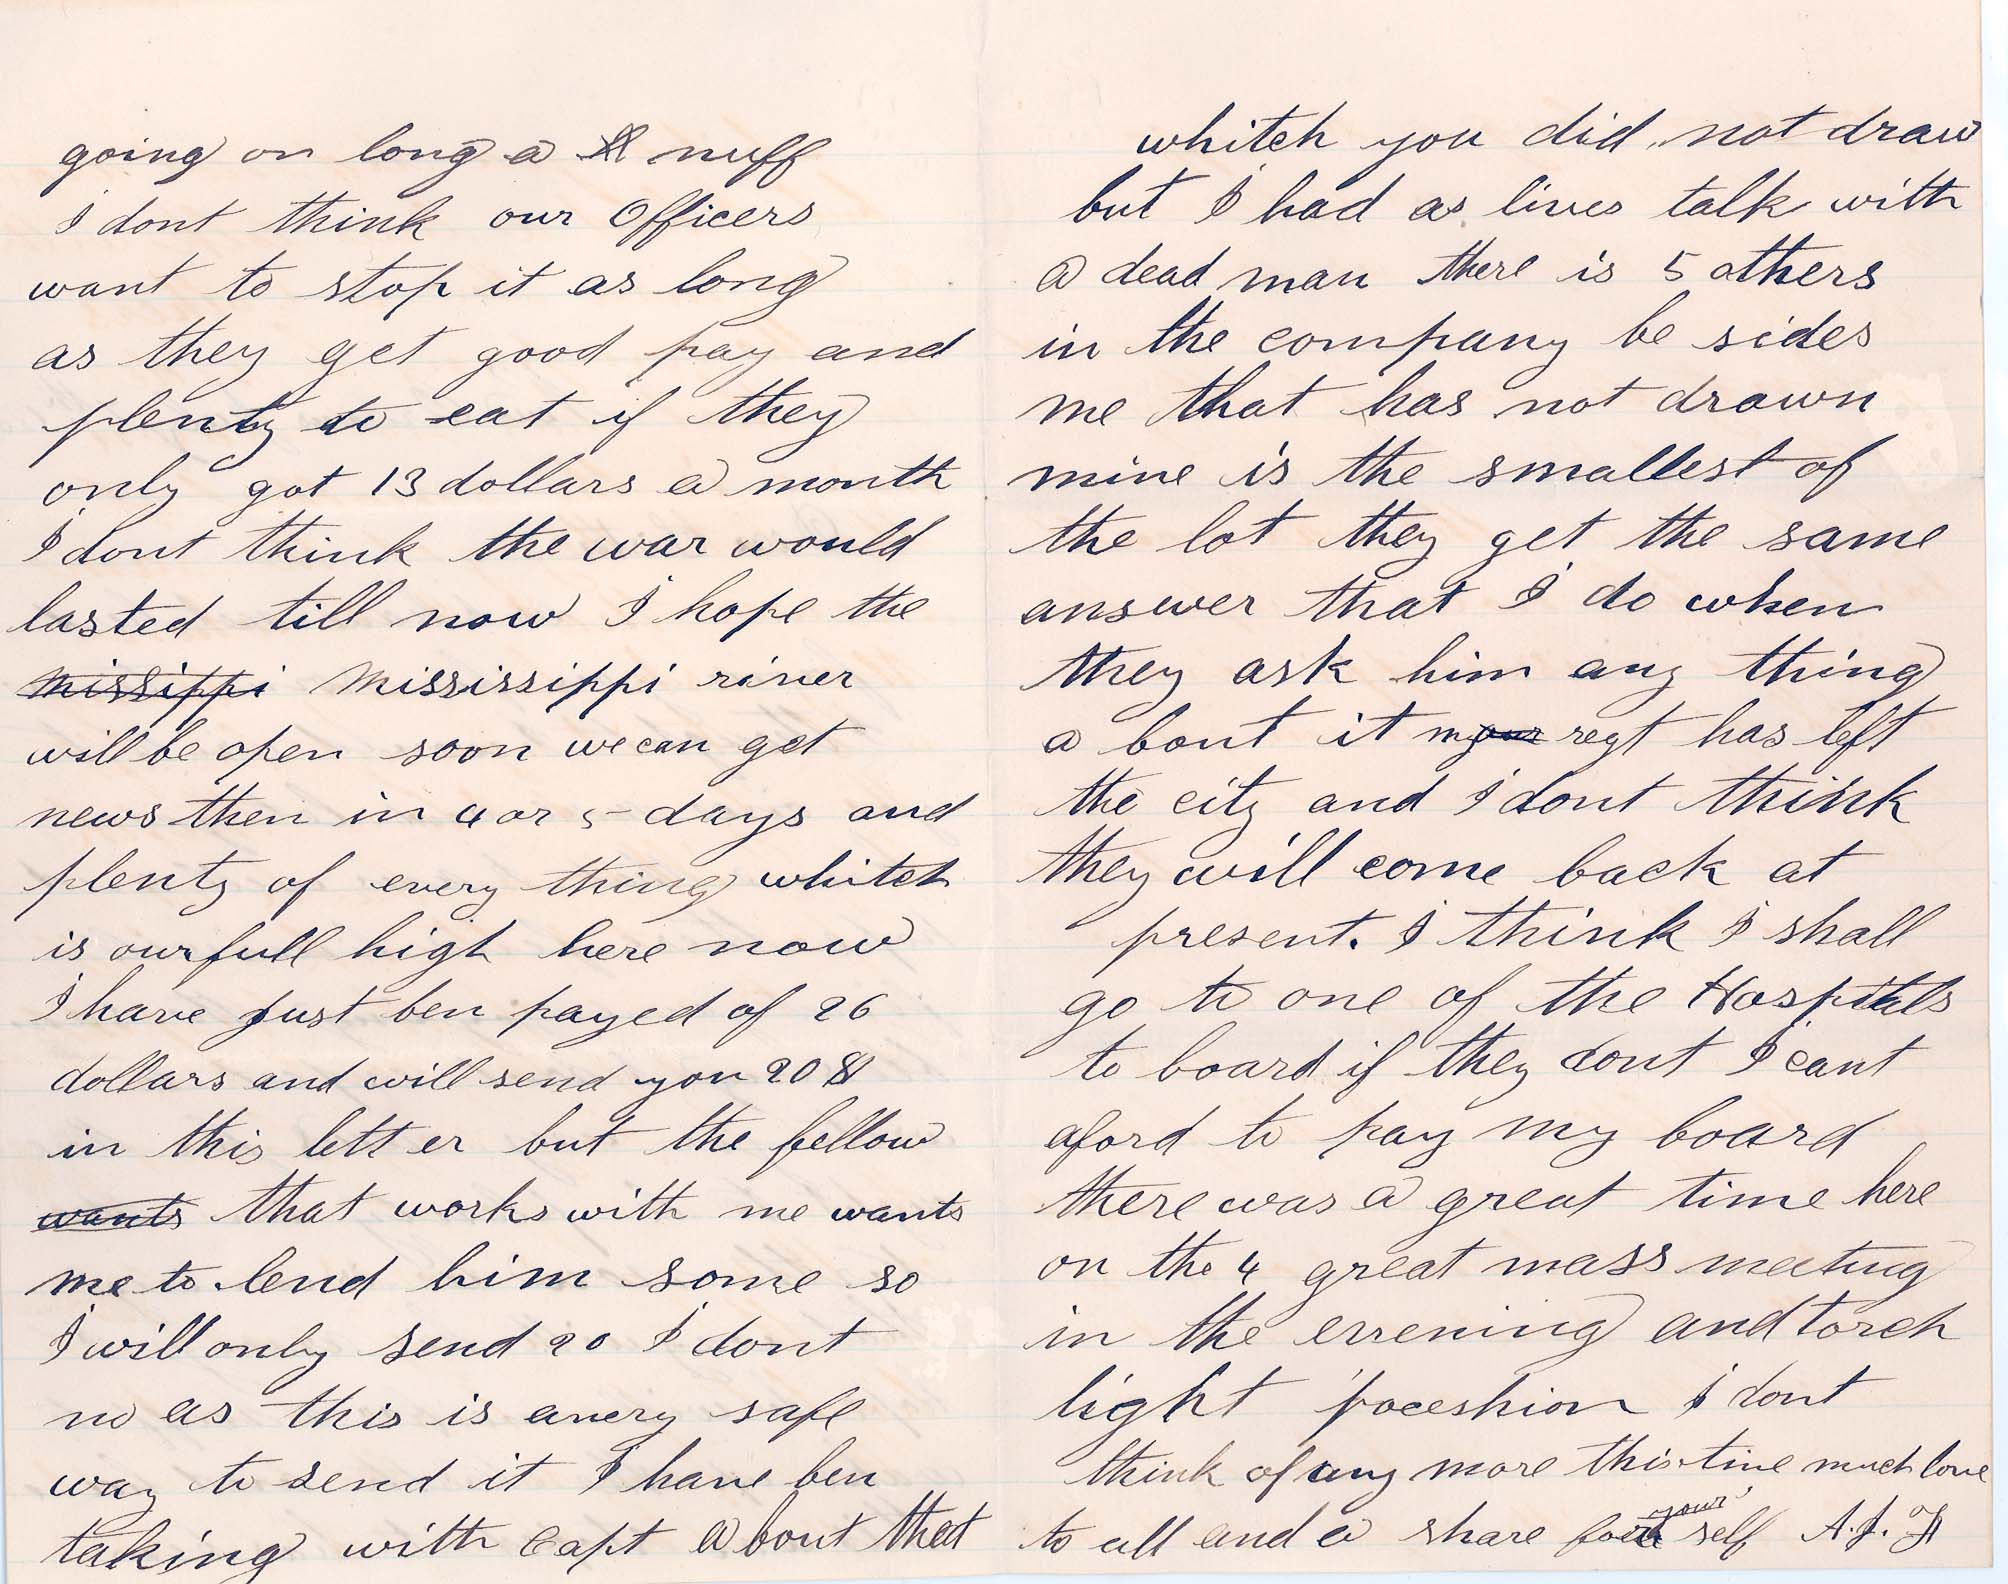 going on long a nuff
I dont think our Officers
want to stop it as long
as they get good pay and
plenty to eat if they
only got 13 dollars a month
I dont think the war would
lasted till now I hope the
missippi Mississippi river
will be open soon we can get
news then in 4 or 5 days and
plenty of every thing whitch
is ourfull high here now
I have just ben payed of 26
dollars and will send you 20 $
in this lett er but the fellow
wants that works with me wants
me to lend him some so
I will only send 20 I dont
no as this is avery safe
way to send it I have ben
taking with Capt a bout that
whitch you did not draw
but I had as lives talk with
a dead man there is 5 others
in the company be sides
me that has not drawn
mine is the smallest of
the lot they get the same
answer that I do when
they ask him any thing
a bout it my regt has left
the city and I dont think
they will come back at
present. I think I shall
go to one of the Hospitals
to board if they dont I cant
aford to pay my board
there was a great time here
on the 4 great mass meeting
in the evening and torch
light poceshion I dont
think of any more this time much love
to all and a share for your self A. J.